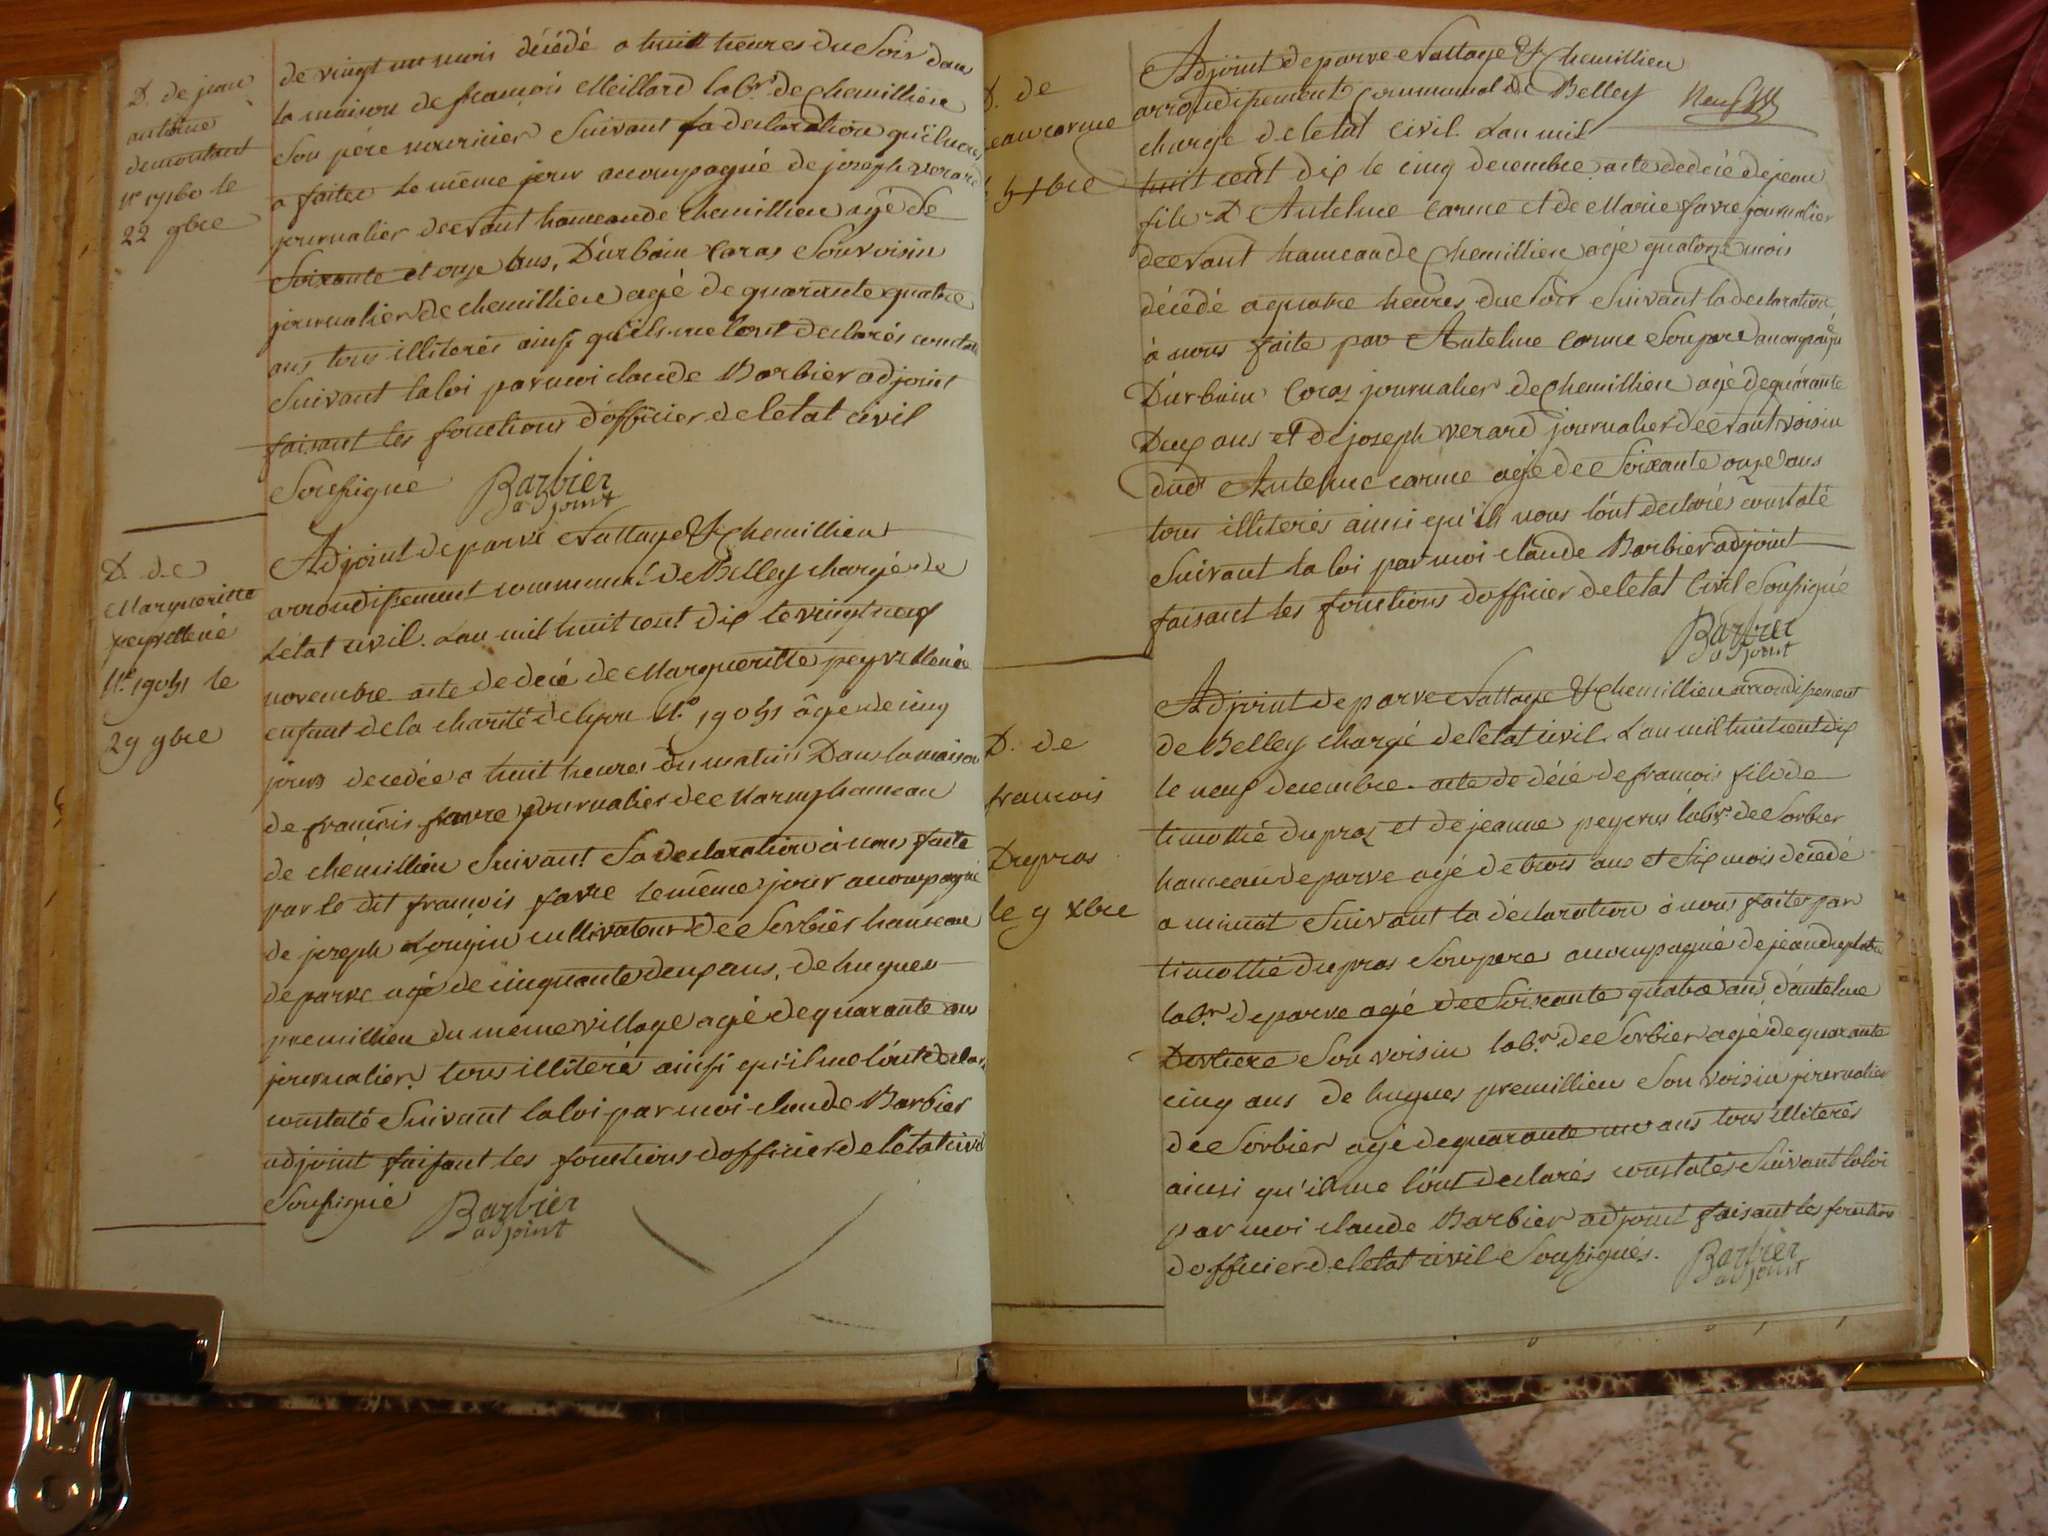 D. de jean
antoine
demontant
n.º 17160 le
22 9bre
de vingt un mois décédé a huit heures du Soir dans
la maison de françois Meillard lab.r de Chemillieu
Son pére nouricier Suivant Sa declaration qu'il
a faitee le même jour accompagné de joseph verard
journalier de evant hameau de Chemillieu agé de
Soixante et onze ans, D'urbain Coras Son voisin
journalier de chemillieu agé de quarante quatre
ans tous illiterés ainsi qu'ils me lont declarés constaté
Suivant la loi par moi claude Barbier adjoint
faisant les fonctions d'officier de letat civil
Sousigné Barbier
adjoint
D. de
Margueritte
peyvellerié
N.º 19051 le
29 9bre
Adjoint de parve Nattage & Chemillieu
arrondissement communal de Belley chargé de
Létat civil. Lan mil huit cent dix le vingt neuf
novembre acte de décé de Margueritte
enfant de la charité de lyon N.º 19051 âgée de cinq
jours decedée a huit heures du matin Dans la maison
de françois favre journalier de hameau
de chemillieu Suivant Sa declaration à nous faite
par le dit françois favre le même jour accompagné
de joseph Lougin cultivateur de Sorbier hameau
de parve agé de cinquante deux ans, de hugues
premillieu du meme village agé de quarante ans
journalier, tous illiteré ainsi qu'il me lónt declaré
constaté Suivant la loi par moi claude Barbier
adjoint faisant les fonctions dofficier de létat civil
Sousigné Barbier
adjoint
D. de
jean carme
5 Xbre
Adjoint de parve Nattage & Chemillieu
arrondissement Communal de Belley
chargé de letat civil. Lan mil
huit cent dix le cinq decembre acte de décé de jean
fils d' Antelme Carme et de Marie favre journalier
de evant hameau de Chemillieu agé quatorze mois
décédé a quatre heures du Soir Suivant la declaration
à nous faite par Antelme Carme Son pere accompagné
D'urbain Coras journalier de Chemillieu agé de quarante
Deux ans et de joseph verard journalier de evant voisin
dud.t Antelme carme agé de Soixante onze ans
tous illiterés ainsi qu'ils nous lónt declarés constaté
Suivant la loi par moi claude Barbier adjoint
faisant les fonctions dofficier de letat Civil Sousigné
Barbier
adjoint
D. de
francois
Dupras
le 9 Xbre
Adjoint de parve Nattage & Chemillieu arrondissement
de Belley chargé de letat civil. Lan mil huit cent dix
le neuf decembre. acte de décé de francois fils de
timottié dupraz et de jeanne lab.r de Sorbier
hameau de parve agé de trois ans et Six mois decedé
a minuit Suivant la déclaration à nous faite par
timottié dupras Son pere accompagné de jean
lab.r de parve agé de Soixante quatre ans d'antelme
Son voisin lab.r de Sorbier agé de quarante
cinq ans de hugues premillieu Son voisin journalier
de Sorbier agé de quarante un ans tous illiterés
ainsi qu'il me lónt declarés constatés Suivant la loi
par moi claude Barbier adjoint faisant les fonction
dofficier de letat civil Sousignés. Barbier
adjoint